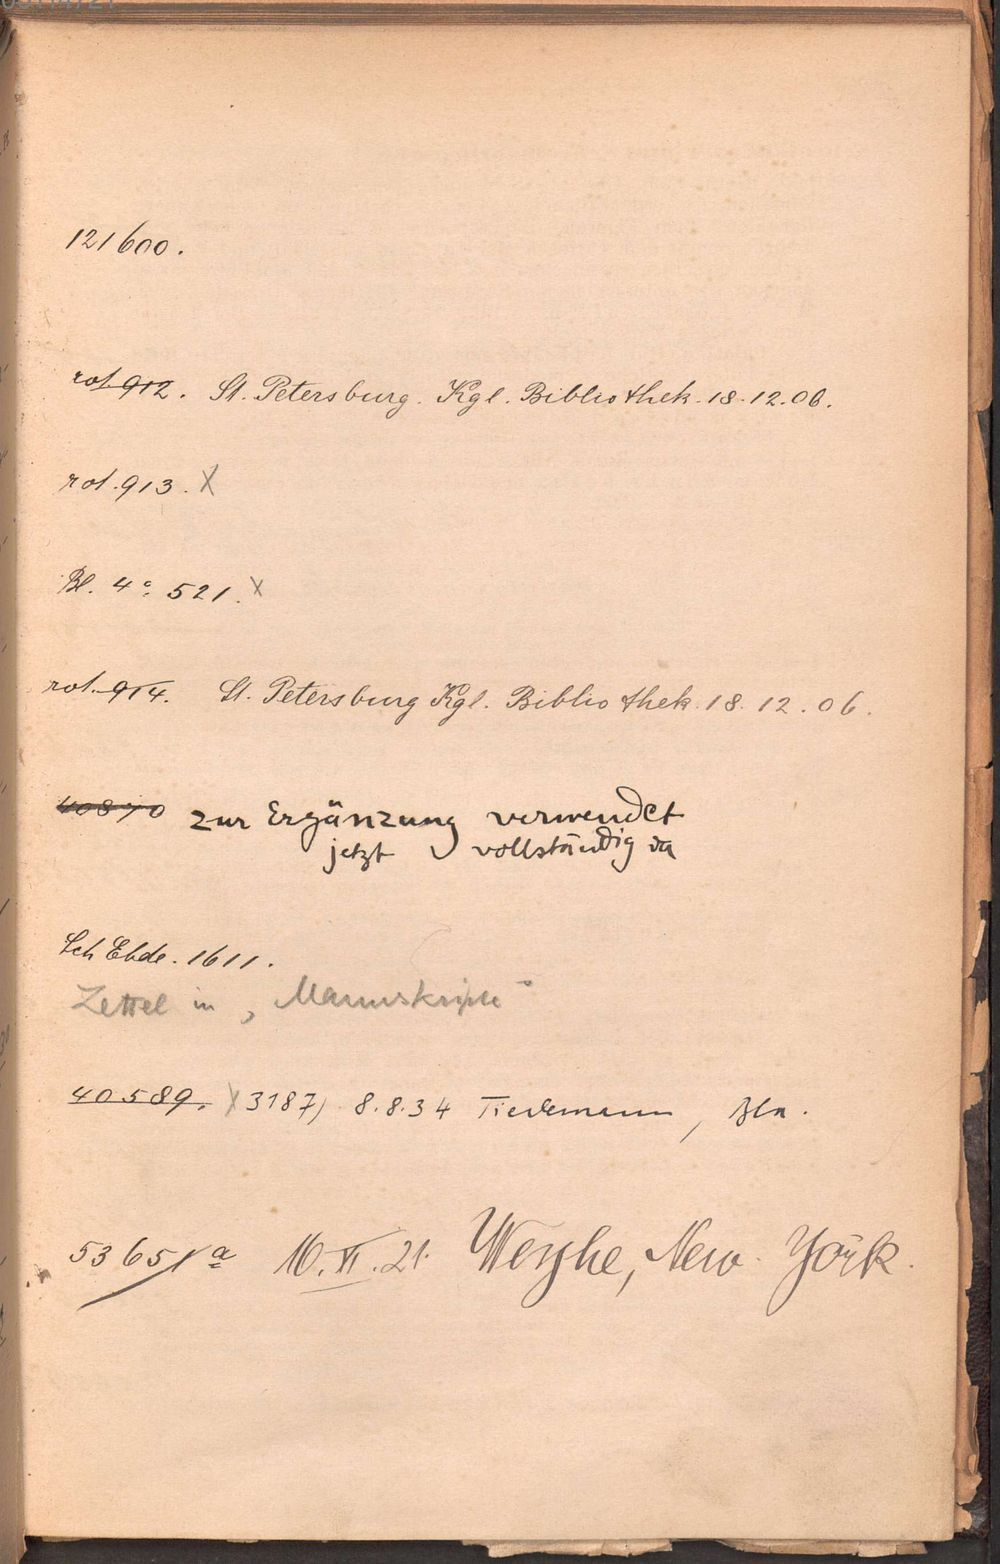 121600.
rot. 912. St. Petersburg. Kgl. Bibliothek. 18.12.06.
rot. 913. X
Bl. 4° 521. X
rot. 914. St. Petersburg Kgl. Bibliothek 18.12.06.
40870 zur Ergänzung verwendet
jetzt vollständig da
1611.
Zettel in „Manuskripte"
40589. X 3187) 8.8.34 Tiedemann, Bln.
53651a 10.VI.21. Weyhe, New-York.